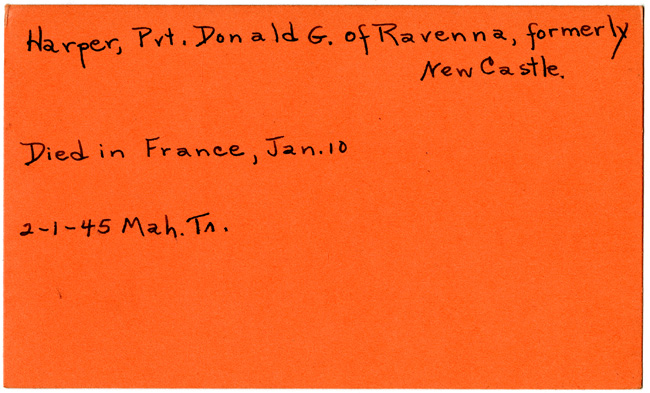 Harper, Pvt. Donald G. of Ravenna, formerly
New Castle.
Died in France, Jan. 10
2-1-45 Mah. Tr.